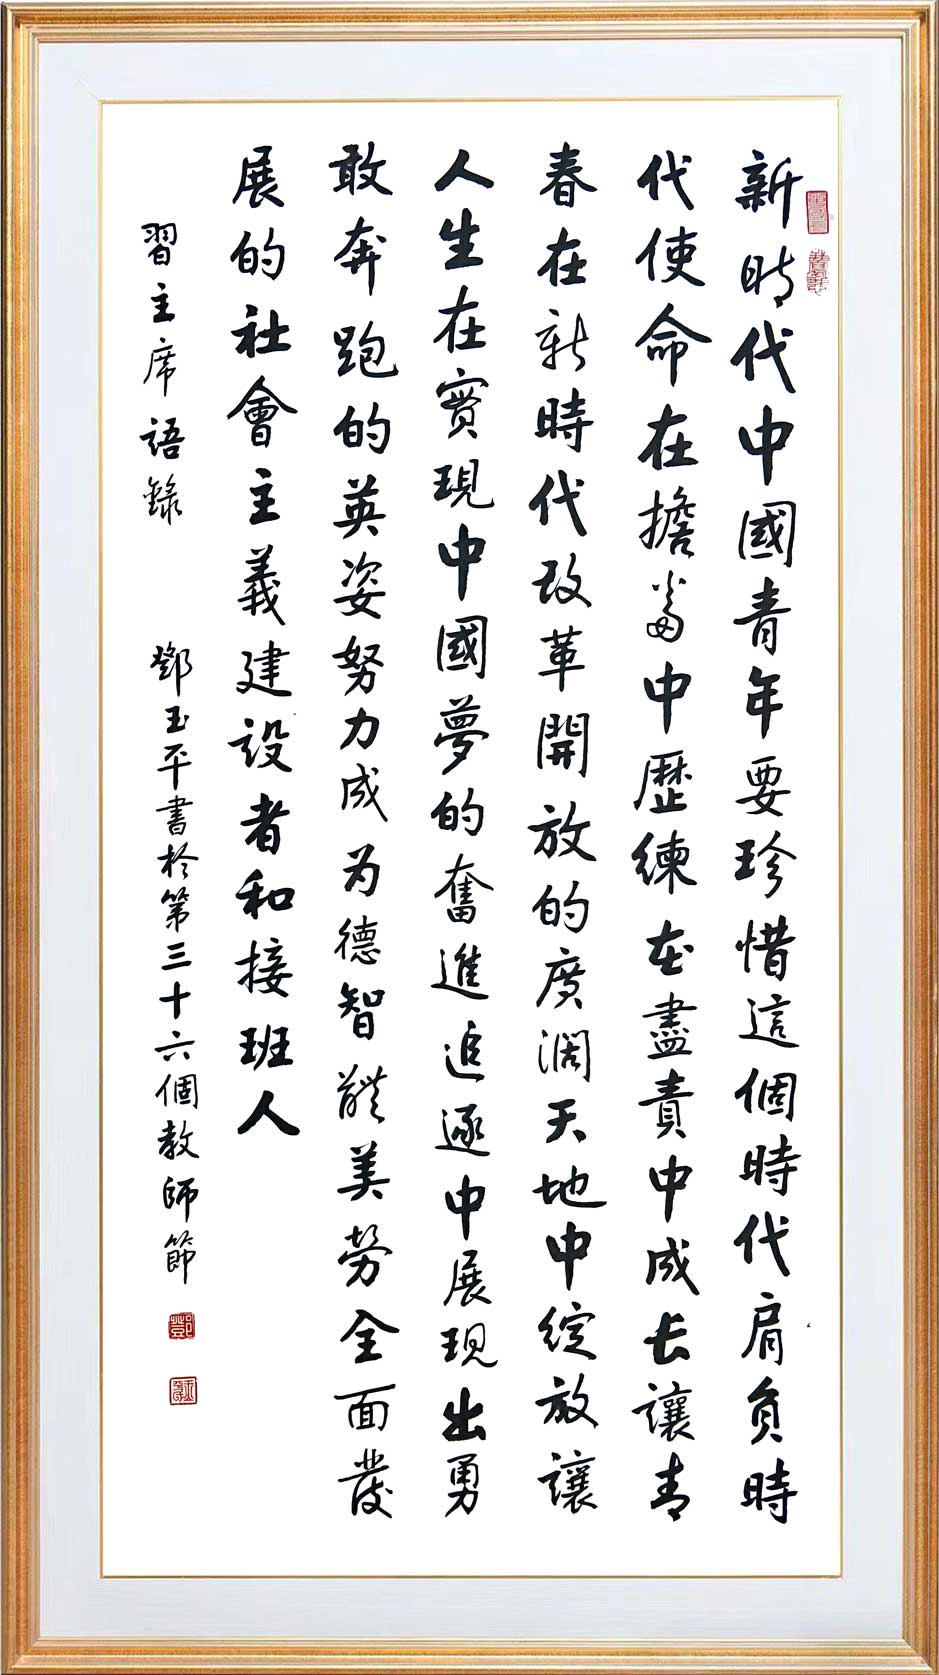 新时代中國青年要珍惜這個時代肩負時
代使命在擔當中歷練在盡責中成长讓青
春在新時代改革開放的廣濶天地中綻放讓
人生在實現中國夢的奮進追逐中展現出勇
敢奔跑的英姿努力成为德智體美勞全面發
展的社會主義建設者和接班人
習主席語錄
鄧玉平書於第三十六個教師節